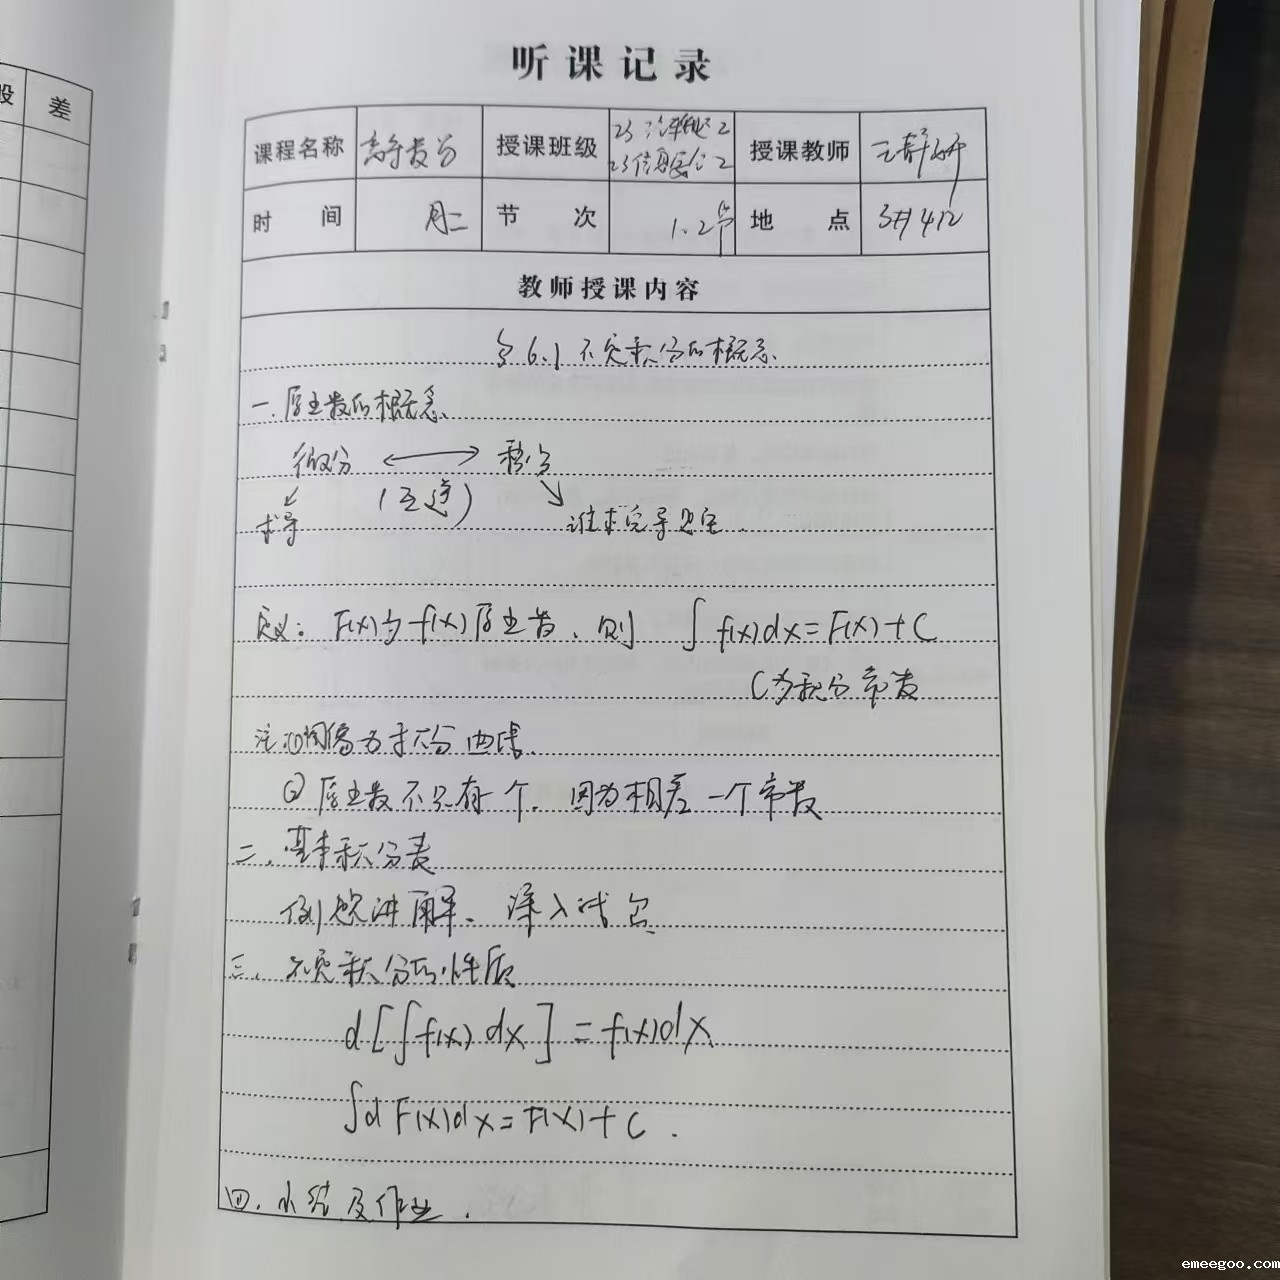 股 差
听课记录
课程名称 高等数学 授课班级 23 2 授课教师 王静妍
23信息 2
时间 周二 节次 1.2节 地点 3#412
教师授课内容
§6.1 不定积分的概念
一.原函数的概念
微分 ⟷ 积分
(互逆)
求导 谁求完导是它.
定义: F(x)为f(x)原函数、则 ∫f(x)dx=F(x)+C
C为积分常数
注:①图像为积分曲线.
②原函数不只有一个.因为相差一个常数
二.基本积分表
例题讲解、深入浅出
三.不定积分的性质
d[∫f(x)dx]=f(x)dx
∫dF(x)dx=F(x)+C.
四.小结及作业.
emeegoo.com